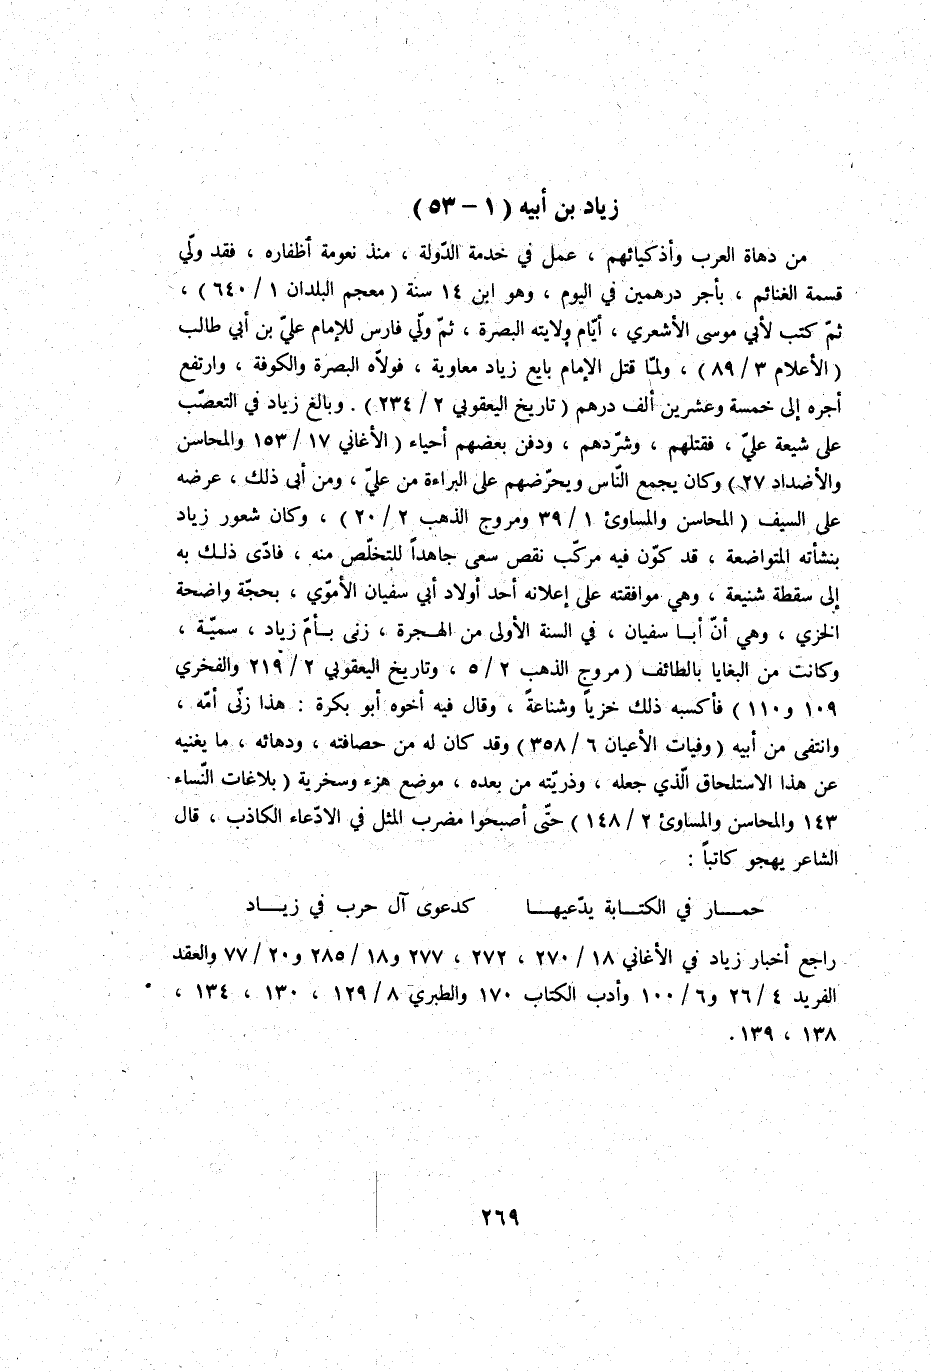 زياد بن أبيه ( ١ – ٥٣ )
من دهاة العرب وأذكيائهم ، عمل في خدمة الدّولة ، منذ نعومة أظفاره ، فقد ولّي
قسمة الغنائم ، بأجر درهمين في اليوم ، وهو ابن ١٤ سنة ( معجم البلدان ١ / ٦٤٠ ) ،
ثمّ كتب لأبي موسى الأشعري ، أيّام ولايته البصرة ، ثمّ ولّي فارس للإمام عليّ بن أبي طالب
( الأعلام ٣ / ٨٩ ) ، ولمّا قتل الإمام بايع زياد معاوية ، فولاّه البصرة والكوفة ، وارتفع
أجره إلى خمسة وعشرين ألف درهم ( تاريخ اليعقوبي ٢ / ٢٣٤ ) . وبالغ زياد في التعصّب
على شيعة عليّ ، فقتلهم ، وشرّدهم ، ودفن بعضهم أحياء ( الأغاني ١٧ / ١٥٣ والمحاسن
والأضداد ٢٧ ) وكان يجمع النّاس ويحرّضهم على البراءة من عليّ ، ومن أبى ذلك ، عرضه
على السيف ( المحاسن والمساوئ ١ / ٣٩ ومروج الذهب ٢ / ٢٠ ) ، وكان شعور زياد
بنشأته المتواضعة ، قد كوّن فيه مركّب نقص سعى جاهداً للتخلّص منه ، فادّى ذلك به
إلى سقطة شنيعة ، وهي موافقته على إعلانه أحد أولاد أبي سفيان الأمويّ ، بحجّة واضحة
الخزي ، وهي أنّ أبا سفيان ، في السنة الأولى من الهجرة ، زنى بأمّ زياد ، سميّة ،
وكانت من البغايا بالطائف ( مروج الذهب ٢ / ٥ ، وتاريخ اليعقوبي ٢ / ٢١٩ والفخري
١٠٩ و ١١٠ ) فأكسبه ذلك خزياً وشناعةً ، وقال فيه أخوه أبو بكرة : هذا زنّى أمّه ،
وانتفى من أبيه ( وفيات الأعيان ٦ / ٣٥٨ ) وقد كان له من حصافته ، ودهائه ، ما يغنيه
عن هذا الاستلحاق الّذي جعله ، وذريّته من بعده ، موضع هزء وسخرية ( بلاغات النّساء
١٤٣ والمحاسن والمساوئ ٢ / ١٤٨ ) حتّى أصبحوا مضرب المثل في الادّعاء الكاذب ، قال
الشاعر يهجو كاتباً :
حمار في الكتابة يدّعيها كدعوى آل حرب في زياد
راجع أخبار زياد في الأغاني ١٨ / ٢٧٠ ، ٢٧٢ ، ٢٧٧ و ١٨ / ٢٨٥ و ٢٠ / ٧٧ والعقد
الفريد ٤ / ٢٦ و ٦ / ١٠٠ وأدب الكتاب ١٧٠ والطبري ٨ / ١٢٩ ، ١٣٠ ، ١٣٤ ،
١٣٨ ، ١٣٩ .
٢٦٩